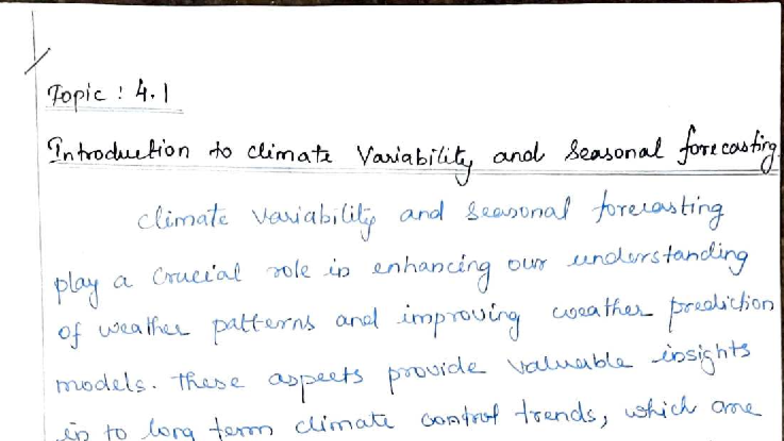 Topic : 4.1
Introduction to climate Variability and Seasonal forecasting
climate variability and seasonal forecasting
play a crucial role in enhancing our understanding
of weather patterns and improving weather prediction
models. These aspects provide valuable insights
in to long term climate control trends, which are